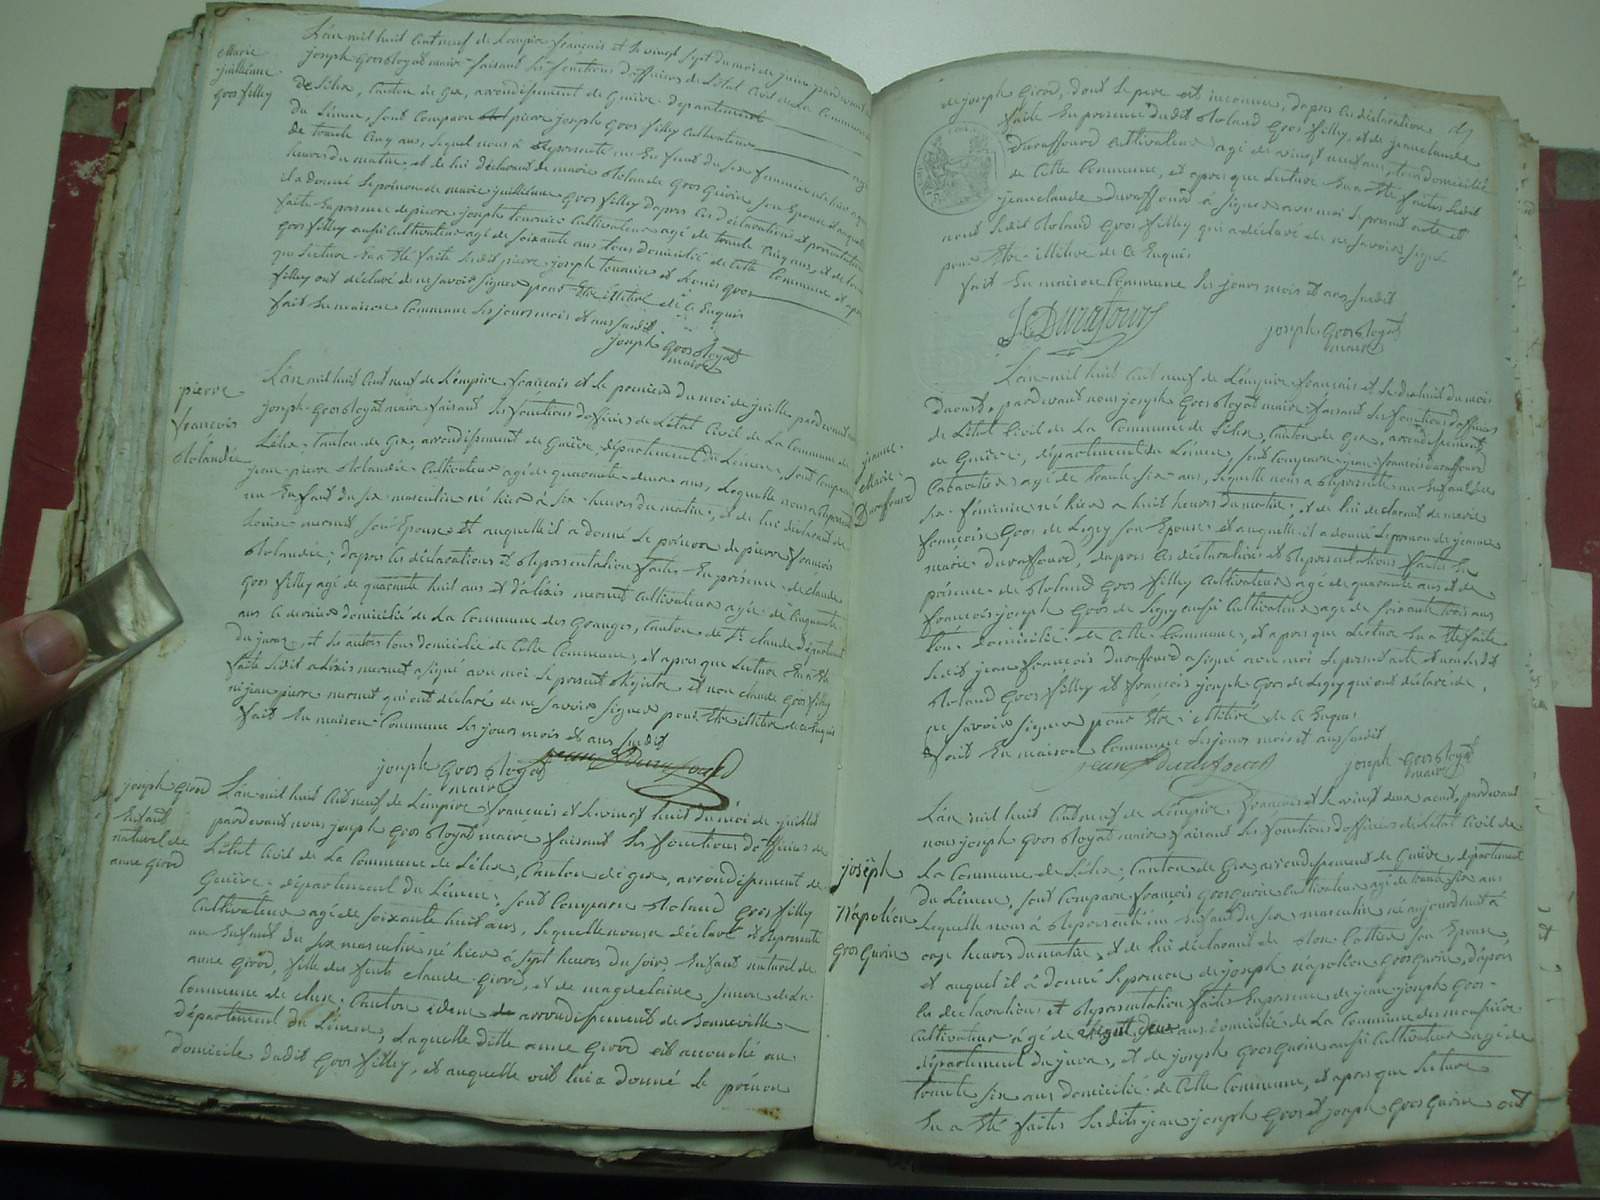 Marie
juillienne
gros filley
L'an mil huit cent neuf de l'empire français et le vingt sept du moi de juin pardevant
joseph gros Royat maire faisant les fonctions d'officier de l'état civil de la Commune
de Lélex, Canton de Gex, arrondissement de Genève département
du Léman, sont comparu pierre joseph gros filley cultivateur
de trente cinq ans, lequel nous à représenté un Enfant du sex feminin
heures du matin, et de lui déclarant de marie Rolande grosgurin son Epouse et auquelle
il a donné le prénom de marie juillienne gros filley d'après les déclarations et présentation
faite En présence de pierre joseph tournier Cultivateur agé de trente Cinq ans et de
gros filley aussi Cultivateur agé de soixante ans tous domicilié de Cette Commune et après
que lecture En a été faite ledit pierre joseph tournier et gros
filley ont déclaré de ne savoir signer pour Etre illitéré de ce Enquis
fait En maison Commune les jours mois et ans susdit
joseph gros Royat
maire
pierre
françois
Rolandez
L'an mil huit Cent neuf de L'empire français et le premier du moi de juillet pardevant
joseph gros Royat maire faisant les fonctions d'officier de L'état Civil de La Commune de
Lélex, Canton de Gex, arrondissement de Genève, département du Léman, sont Comparu
jean pierre Cultivateur agé de quarante deux ans, Lequelle nous a représenté
un Enfant du sex masculin né hier à six heures du matin, et de lui déclarant de
Louise son Epouse et auquelle il a donné le prénom de pierre françois
d'après les déclarations et Représentation faites En présence de claude
gros filley agé de quarante huit ans et d'aléxis Cultivateur agé de Cinquante
ans Ce dernier domicilié de La Commune des Granges, Canton de St Claude département
du jura, et les autres tous domicilié de Cette Commune, et après que Lecture En a été
faite ledit aléxis a signé avec moi le présent Régistre et non claude gros filley
ni jean pierre qui ont déclaré de ne savoir signer pour Etre illitéré de ce Enquis
fait En maison Commune les jours mois et ans susdit
joseph gros Royat
maire
joseph Girod
Enfant
naturel de
anne Girod
L'an mil huit Cent neuf de L'empire français et le vingt huit du moi de juillet
pardevant nous joseph gros Royat maire faisant les fonctions d'officier de
L'état Civil de La Commune de Lélex, Canton de gex, arrondissement de
Genève, département du Léman, sont Comparu Roland gros filley
Cultivateur agé de soixante huit ans, lequelle nous a déclaré et Représenté
un Enfant du sex masculin né hier à sept heures du soir, Enfant naturel de
anne Girod, fille des feux claude Girod, et de magdelaine Simon de La
Commune de cluse, Canton idem arrondissement de Bonneville
département du Léman, Laquelle ditte anne Girod est accouché au
domicile dudit gros filley, et auquelle on lui a donné le prénom
de joseph Girod, dont le pere est inconnu, d'apres les déclarations
faite En présence dudit Roland gros filley, et de jean claude
Duraffourd Cultivateur agé de vingt neuf ans, tous domicilié
de Cette Commune, et apres que Lecture En a été faites ledit
jean claude Duraffourd a signé avec moi le présent acte et
non ledit Roland gros filley qui a déclaré de ne savoir signer
pour Etre illitéré de ce Enquis
fait En maison Commune les jours mois et ans susdit
JC Duraffourd
joseph gros Royat
maire
jeanne
Marie
Duraffourd
L'an mil huit Cent neuf de L'empire français et le dixhuit du mois
Daout, pardevant nous joseph gros Royat maire faisant les fonctions d'officier
de L'état Civil de La Commune de Lélex, Canton de Gex, arrondissement
de Genève, département du Léman, sont Comparu jean françois Duraffourd
Cabaretier agé de trente six ans, lequelle nous a Représenté un Enfant du
sex féminin né hier à huit heures du matin, et de lui déclarant de marie
françoise gros de Ligny son Epouse et auquelle il a donné le prénom de jeanne
marie Duraffourd, d'apres les déclarations et Représentations faites En
présence de Roland gros filley Cultivateur agé de quarante ans et de
françois joseph gros de Ligny aussi Cultivateur agé de soixante trois ans
tous domicilié de Cette Commune, et apres que Lecture En a été faite
ledit jean françois Duraffourd a signé avec moi le présent acte et non ledit
Roland gros filley et françois joseph gros de Ligny qui ont déclaré de
ne savoir signer pour Etre illitéré de ce Enquis
fait En maison Commune les jours mois et ans susdit
jean f Duraffourd
joseph gros Royat
maire
joseph
Napoléon
grosGurin
L'an mil huit Cent neuf de L'empire français et le vingt deux aout, pardevant
nous joseph gros Royat maire faisant les fonctions d'officier de L'état Civil de
La Commune de Lélex, Canton de Gex, arrondissement de Genève, département
du Léman, sont Comparu françois grosgurin Cultivateur agé de trente six ans
lequelle nous à Représenté un Enfant du sex masculin né aujourd'hui à
onze heures du matin, et de lui déclarant de son Epouse,
et auquel il à donné le prénom de joseph Napoléon grosgurin, d'après
les déclarations et Représentation faites En présence de jean joseph gros
Cultivateur agé de vingt deux ans domicilié de La Commune des
département du jura, et de joseph grosgurin aussi Cultivateur agé de
trente six ans domicilié de Cette Commune, et apres que Lecture
En a été faites lesdits jean joseph gros et joseph grosgurin ont